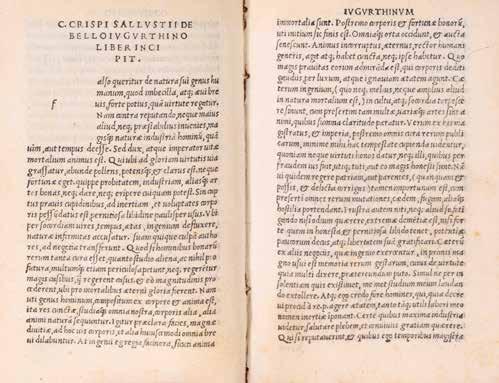 C. CRISPI SALLUSTII DE
BELLO IVGVRTHINO
LIBER INCI
PIT.
f
also queritur de natura sui genus hu
manum, quod imbecilla, atq; æui bre
uis, forte potius, quàm uirtute regatur.
Nam contra reputando, neque maius
aliud, neq; præstabilius inuenias, ma
gisq; naturæ industria hominũ, quã
uim, aut tempus deesse. Sed dux, atque imperator uitæ
mortalium animus est. Qui ubi ad gloriam uirtutis uia
grassatur, abunde pollens, potensq; et clarus est, neque
fortuna eget. quippe probitatem, industriam, aliasq; ar
tes bonas, neq; dare, neq; eripere cuiquam potest. Sin cap
tus prauis cupidinibus, ad inertiam, et uoluptates corpo
ris pessũ datus est perniciosa libidine paulisper usus. Vbi
per socordiam uires, tempus, ætas, ingenium defluxere,
naturæ infirmitas accusatur. suam quique culpã autho
res, ad negotia transferunt. Quod si hominibus bonarũ
rerum tanta cura esset, quanto studio aliena, ac nihil pro
futura, multumq; etiam periculosa petunt, neq; regerétur
magis casibus, q̃ regerent casus. et eò magnitudinis pro
cederent, ubi pro mortalibus æterni gloria fierent. Nam
uti genus hominum, compositum ex corpore et anima est,
ita res cunctæ, studiaq; omnia nostra, corporis alia, alia
animi naturã sequuntur. Igitur præclara facies, magnæ
diuitiæ, ad hoc uis corporis, et alia huiuscemodi omnia bre
ui dilabuntur. At ingenii egregia facinora, sicuti anima
IVGVRTHINVM
immortalia sunt. Postremo corporis et fortunæ bonorũ,
uti initium sic finis est. Omniaq; orta occidunt, et aucta
senescunt. Animus incorruptus, æternus, rector humani
generis, agit, atq; habet cuncta, neq; ipse habetur. Quo
magis prauitas eorum admiranda est, qui corporis dediti
gaudiis, per luxum, atque ignauiam ætatem agunt. Cæ
terum ingenium, (quo neq; melius, neque amplius aliud
in natura mortalium est,) in cultu, atq; socordia torpesce
re sinunt, cum præsertim tam multæ, uariæq; sint artes ani
mi, quibus summa claritudo paratur. Verum ex his ma
gistratus, et imperia, postremo omnis cura rerum publi
carum, minime mihi hac tempestate cupienda uidentur.
quoniam neq; uirtuti honos datur, neq; illi, quibus per
fraudem ius fuit, utiq; tuti, aut eo magis honesti sunt. Nã
ui quidem regere patriam, aut parentes, (quan quam et
possis, et delicta corrigas) tamen importunum est, cum
præsertim omnes rerum mutationes, cædem, fugam, aliaq;
hostilia portendant. Frustra autem niti, neq; aliud, se fati
gando nisi odium quærere, extremæ dementiæ est, nisi for
te quem in honesta, et perniciosa libido tenet, potentiæ
paucorum decus, atq; libertatem suã gratificari. Cæterũ
ex aliis negotiis, quæ ingenio exercentur, in primis ma
gno usui est memoria rerum gestarum, cuius de uirtute
quia multi dixere, prætereundum puto. Simul ne per in
solentiam quis existimet, me met studium meum laudan
do extollere. Atq; ego credo fore homines, qui, quia decre
ui procul à re p. agere ætatem, tanto tàq; utili labori meo
nomen inertiæ imponant. Certe quibus maxima industria
uidetur, salutare plebem, et conuiuiis gratiam quærere.
Qui si reputauerint, et quibus ego temporibus magistra